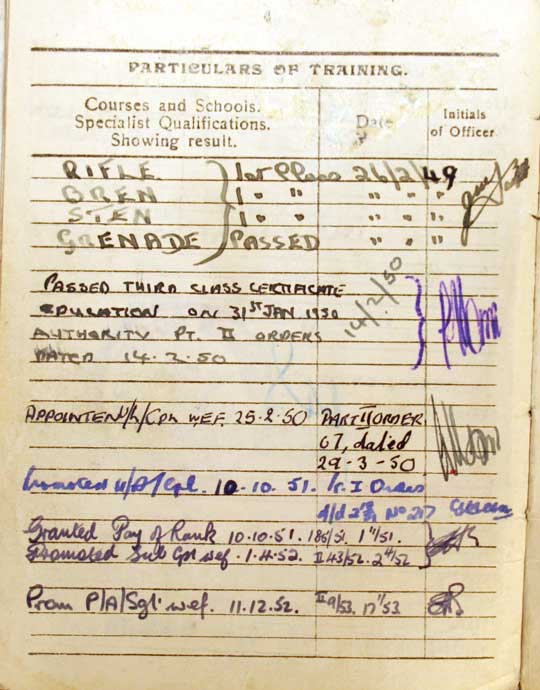 PARTICULARS OF TRAINING.
Courses and Schools.
Specialist Qualifications.
Showing result.
Date
Initials
of Officer
RIFLE 1st Class 26/2/49
BREN 1 " " " " "
STEN 1 " " " " "
GRENADE PASSED " " "
PASSED THIRD CLASS CERTIFICATE
EDUCATION ON 31ST JAN 1950
AUTHORITY PT. II ORDERS
DATED 14.2.50
14/2/50
APPOINTED U/L/Cpl WEF 25-2-50 PART II ORDER
67, dated
29-3-50
Promoted U/A/Cpl. 10.10.51. Pt. I Orders
No 217
Granted Pay of Rank 10.10.51. 186/51. 1"/51.
Promoted Sub Cpl wef. 1.4.52. II 43/52. 2"/52
Prom P/A/Sgt wef. 11.12.52. II 9/53. 17'/53.